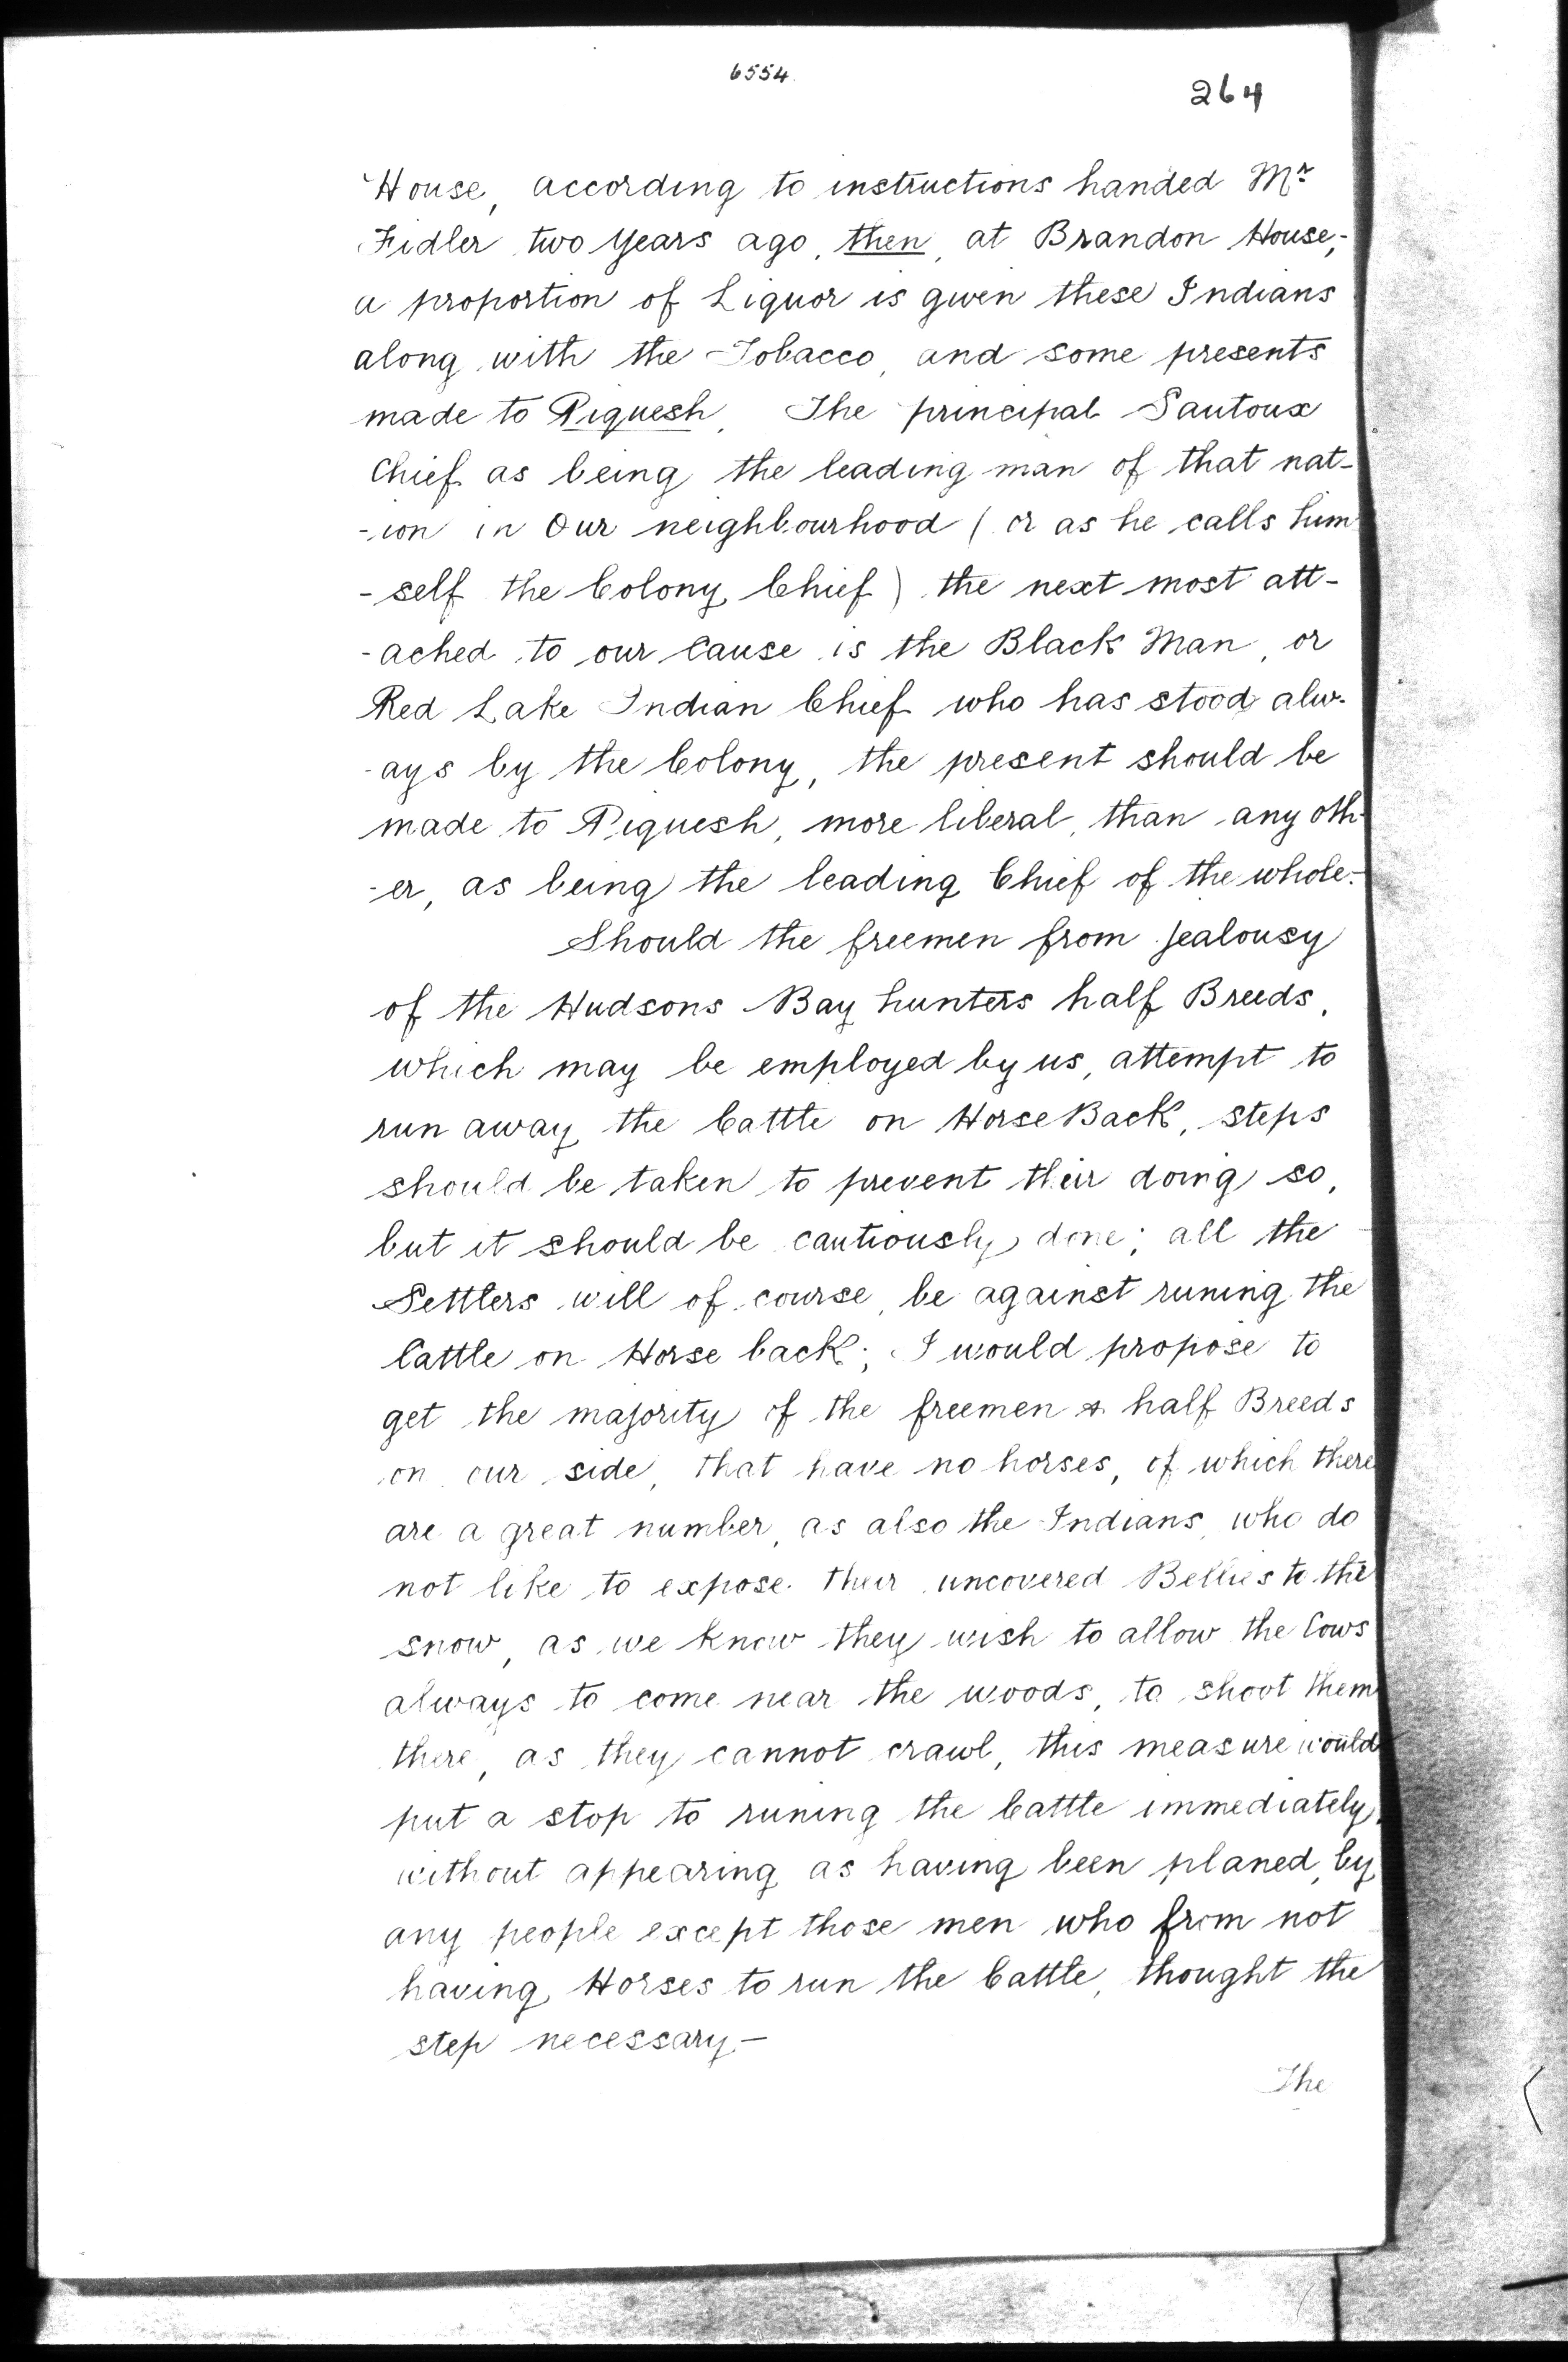 6554
264
House, according to instructions handed Mr
Fidler two years ago, then, at Brandon House,-
a proportion of Liquor is given these Indians
along with the Tobacco, and some presents
made to Piquesh, The principal Sautoux
Chief as being the leading man of that nat-
-ion in Our neighbourhood (or as he calls him
-self the Colony Chief) the next most att-
-ached to our Cause is the Black Man, or
Red Lake Indian Chief who has stood alw-
-ays by the Colony, the present should be
made to Piquesh, more liberal, than any oth-
-er, as being the leading Chief of the whole.-
Should the freemen from jealousy
of the Hudsons Bay hunters half Breeds,
which may be employed by us, attempt to
run away the Cattle on HorseBack, steps
should be taken to prevent their doing so,
but it should be cautiously done; all the
Settlers will of course, be against runing the
Cattle on Horse back; I would propose to
get the majority of the freemen & half Breeds
on our side, that have no horses, of which there
are a great number, as also the Indians, who do
not like to expose their uncovered Bellies to the
snow, as we know they wish to allow the Cows
always to come near the woods, to shoot them
there, as they cannot crawl, this measure would
put a stop to runing the Cattle immediately,
without appearing as having been planed, by
any people except those men who from not
having Horses to run the Cattle, thought the
step necessary.-
The